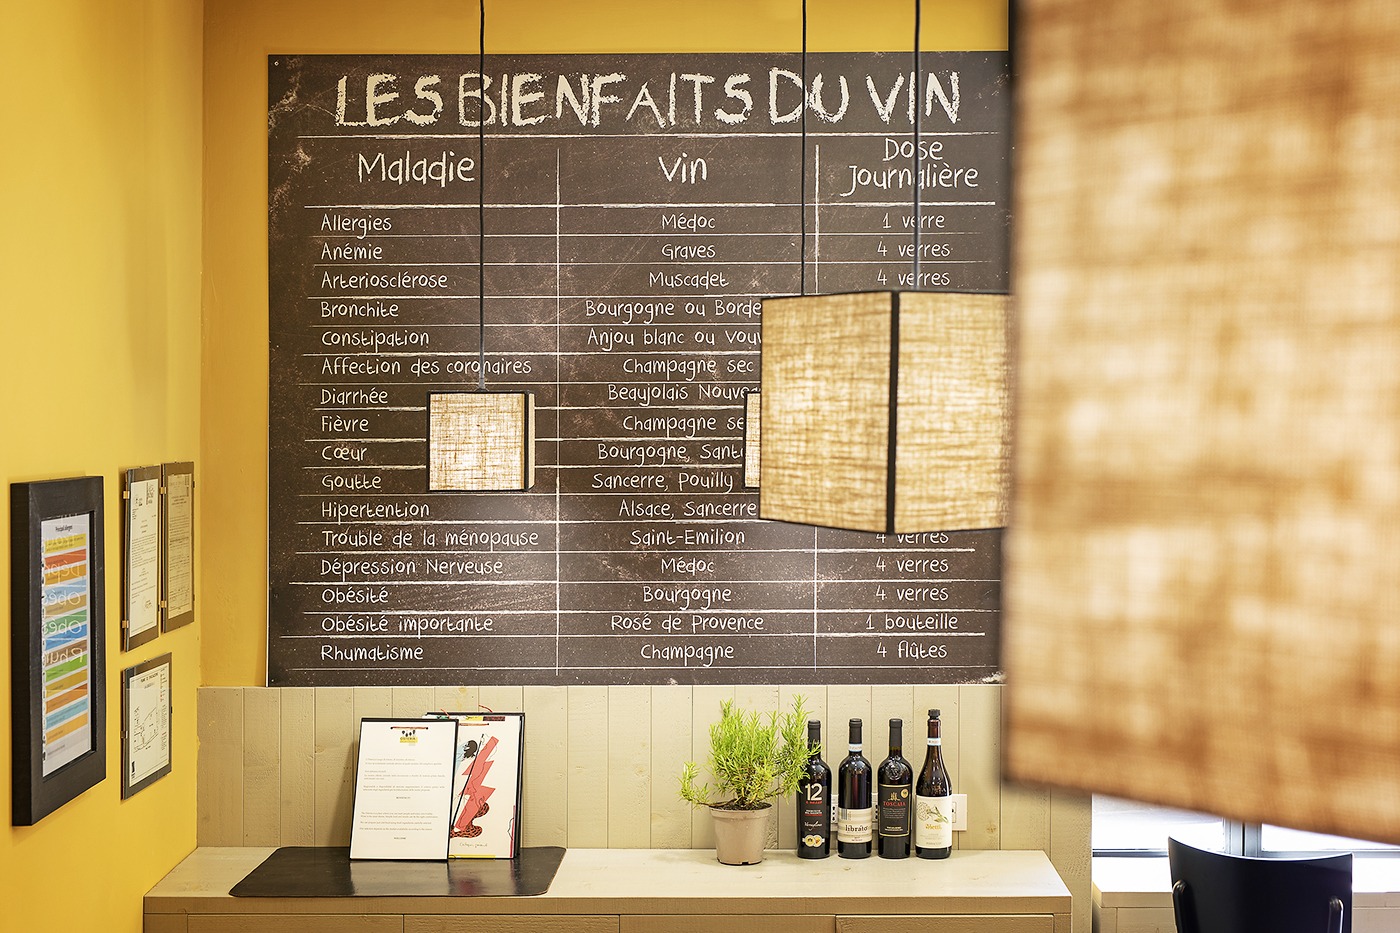 LES BIENFAITS DU VIN
Maladie Vin Dose Journalière
Allergies Médoc 1 verre
Anémie Graves 4 verres
Arteriosclérose Muscadet 4 verres
Bronchite Bourgogne ou
Constipation Anjou blanc ou
Affection des coronaires Champagne sec
Diarrhée Beaujolais
Fièvre Champagne
Cœur Bourgogne,
Goutte Sancerre, Pouilly
Hipertention Alsace, Sancerre
Trouble de la ménopause Saint-Emilion 4 verres
Dépression Nerveuse Médoc 4 verres
Obésité Bourgogne 4 verres
Obésité importante Rosé de Provence 1 bouteille
Rhumatisme Champagne 4 flûtes
12
librato
TOSCAIA